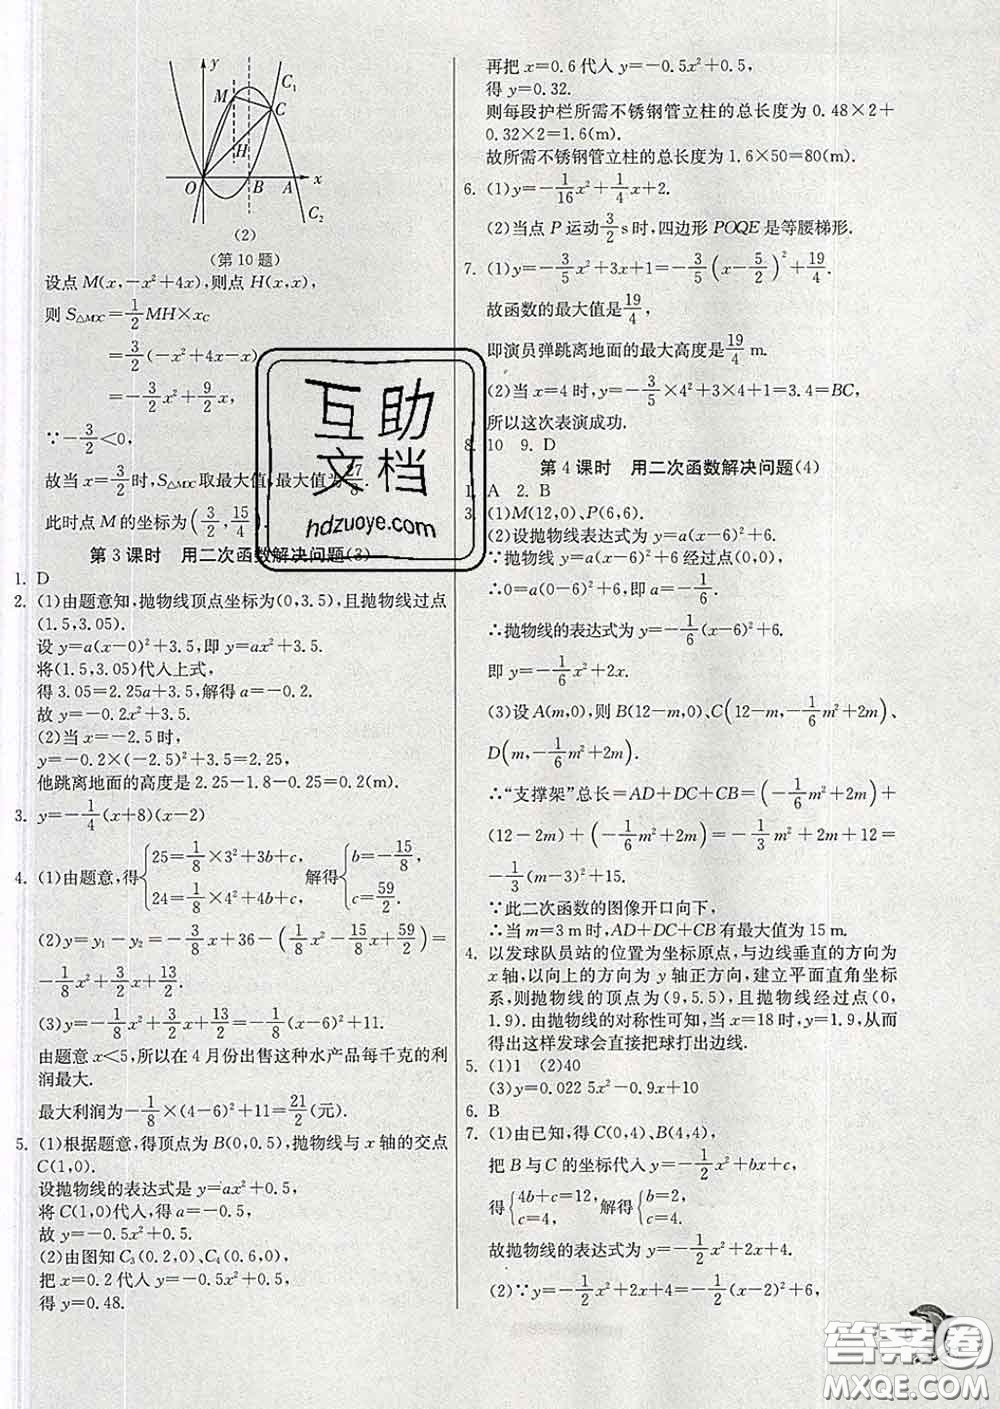 y
C₁
M
C
H
O
B
A
x
C₂
(2)
(第10题)
设点M(x,-x²+4x),则点H(x,x),
则S△MOC=1/2MH×xC
=3/2(-x²+4x-x)
=-3/2x²+9/2x,
∵-3/2<0,
故当x=3/2时,S△MOC取最大值,最大值为27/8.
此时点M的坐标为(3/2,15/4).
第3课时 用二次函数解决问题(3)
1. D
2. (1)由题意知,抛物线顶点坐标为(0,3.5),且抛物线过点
(1.5,3.05).
设y=a(x-0)²+3.5,即y=ax²+3.5.
将(1.5,3.05)代入上式,
得3.05=2.25a+3.5,解得a=-0.2.
故y=-0.2x²+3.5.
(2)当x=-2.5时,
y=-0.2×(-2.5)²+3.5=2.25,
他跳离地面的高度是2.25-1.8-0.25=0.2(m).
3. y=-1/4(x+8)(x-2)
4. (1)由题意,得{25=1/8×3²+3b+c, 24=1/8×4²+4b+c, 解得{b=-15/8, c=59/2.
(2)y=y₁-y₂=-3/8x+36-(1/8x²-15/8x+59/2)=
-1/8x²+3/2x+13/2.
(3)y=-1/8x²+3/2x+13/2=-1/8(x-6)²+11.
由题意x<5,所以在4月份出售这种水产品每千克的利
润最大.
最大利润为-1/8×(4-6)²+11=21/2(元).
5. (1)根据题意,得顶点为B(0,0.5),抛物线与x轴的交点
C(1,0).
设抛物线的表达式是y=ax²+0.5,
将C(1,0)代入,得a=-0.5,
故y=-0.5x²+0.5.
(2)由图知C₃(0.2,0)、C₄(0.6,0),
把x=0.2代入y=-0.5x²+0.5,
得y=0.48.
再把x=0.6代入y=-0.5x²+0.5,
得y=0.32.
则每段护栏所需不锈钢管立柱的总长度为0.48×2+
0.32×2=1.6(m).
故所需不锈钢管立柱的总长度为1.6×50=80(m).
6. (1)y=-1/16x²+1/4x+2.
(2)当点P运动3/2s时,四边形POQE是等腰梯形.
7. (1)y=-3/5x²+3x+1=-3/5(x-5/2)²+19/4.
故函数的最大值是19/4,
即演员弹跳离地面的最大高度是19/4 m.
(2)当x=4时,y=-3/5×4²+3×4+1=3.4=BC,
所以这次表演成功.
8. 10 9. D
第4课时 用二次函数解决问题(4)
1. A 2. B
3. (1)M(12,0)、P(6,6).
(2)设抛物线表达式为y=a(x-6)²+6.
∵抛物线y=a(x-6)²+6经过点(0,0),
∴0=a(0-6)²+6,即a=-1/6.
∴抛物线的表达式为y=-1/6(x-6)²+6.
即y=-1/6x²+2x.
(3)设A(m,0),则B(12-m,0)、C(12-m,-1/6m²+2m)、
D(m,-1/6m²+2m).
∴“支撑架”总长=AD+DC+CB=(-1/6m²+2m)+
(12-2m)+(-1/6m²+2m)=-1/3m²+2m+12=
-1/3(m-3)²+15.
∵此二次函数的图像开口向下,
∴当m=3 m时,AD+DC+CB有最大值为15 m.
4. 以发球队员站的位置为坐标原点,与边线垂直的方向为
x轴,以向上的方向为y轴正方向,建立平面直角坐标
系,则抛物线的顶点为(9,5.5),且抛物线经过点(0,
1.9).由抛物线的对称性可知,当x=18时,y=1.9,从而
得出这样发球会直接把球打出边线.
5. (1)1 (2)40
(3)y=0.022 5x²-0.9x+10
6. B
7. (1)由已知,得C(0,4)、B(4,4),
把B与C的坐标代入y=-1/2x²+bx+c,
得{4b+c=12, c=4, 解得{b=2, c=4.
故抛物线的表达式为y=-1/2x²+2x+4.
(2)∵y=-1/2x²+2x+4=-1/2(x-2)²+6,
互助
文档
hdzuoye.com
答案圈
MXQE.COM